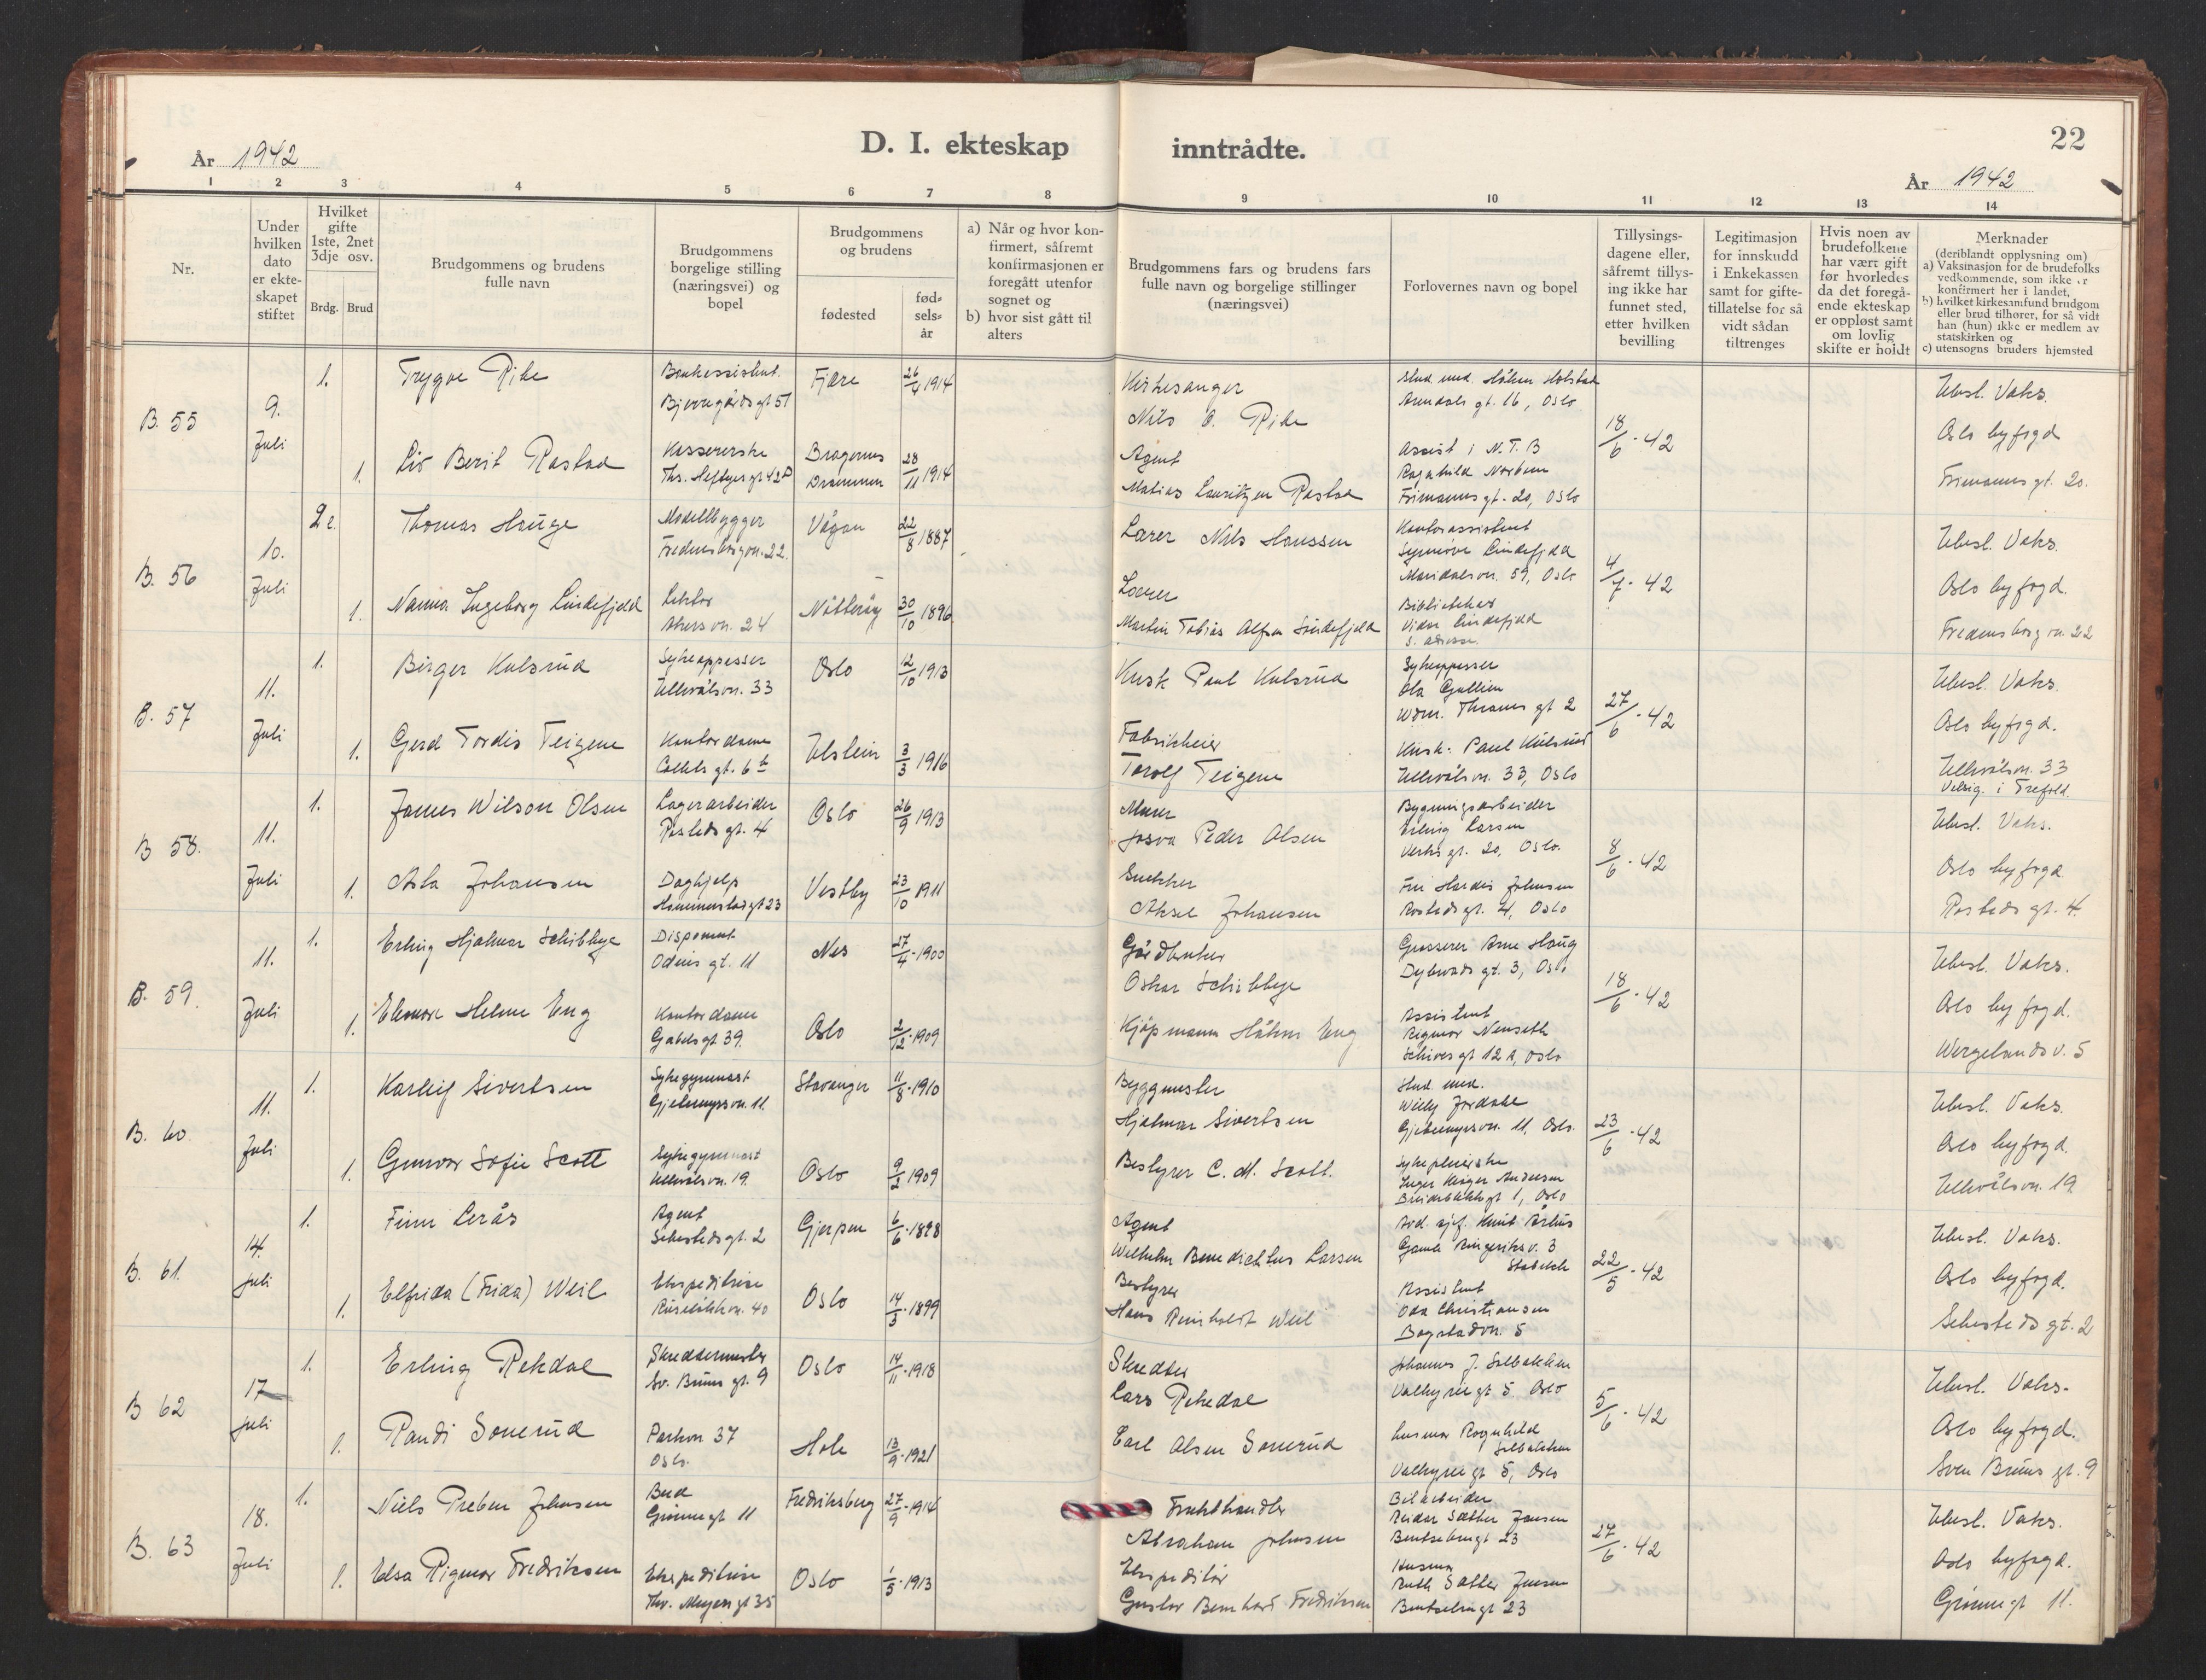 D. I. ekteskap inntrådte.
22
År 1942
År 1942
1 2 3 4 5 6 7 8 9 10 11 12 13 14
Nr.
Under hvilken dato er ekteskapet stiftet
Hvilket gifte 1ste, 2net 3dje osv.
Brdg. Brud
Brudgommens og brudens fulle navn
Brudgommens borgelige stilling (næringsvei) og bopel
Brudgommens og brudens
fødested
fødsels-år
a) Når og hvor konfirmert, såfremt konfirmasjonen er foregått utenfor sognet og
b) hvor sist gått til alters
Brudgommens fars og brudens fars fulle navn og borgelige stillinger (næringsvei)
Forlovernes navn og bopel
Tillysingsdagene eller, såfremt tillysing ikke har funnet sted, etter hvilken bevilling
Legitimasjon for innskudd i Enkekassen samt for giftetillatelse for så vidt sådan tiltrenges
Hvis noen av brudefolkene har vært gift før hvorledes da det foregående ekteskap er oppløst samt om lovlig skifte er holdt
Merknader
(deriblandt opplysning om)
a) Vaksinasjon for de brudefolks vedkommende, som ikke er konfirmert her i landet,
b) hvilket kirkesamfund brudgom eller brud tilhører, for så vidt han (hun) ikke er medlem av statskirken og
c) utensogns bruders hjemsted
B. 55
9. Juli
1. Trygve Rike
Bankassistent
Bjerregårds gt 51
Fjære 26/4 1914
Kirkesanger
Nils O. Rike
Stud. med. Håkon Holstad
Arendals gt. 16, Oslo
18/6 - 42
Ubesl. Vaks.
Oslo byfogd
Frimanns gt. 20.
1. Liv Berit Rastad
Kassererske
Ths. Heftyes gt 42
Bragernes
Drammen 28/11 1914
Agent
Matias Lauritzen Rastad
Assist i N.T.B
Ragnhild
Frimanns gt. 20, Oslo
B. 56
10. Juli
2. Thomas Hauge
Modellbygger
Fredensborgvn. 22.
Vågan 22/8 1887
Lærer Nils Hanssen
Kontorassistent
Synnøve Lindefjeld
Maridalsvn. 59, Oslo
4/7 - 42
Ubesl. Vaks.
Oslo byfogd.
Fredensborgvn. 22
1. Nanna Ingeborg Lindefjeld
Lektor
Akersvn. 24
Nøtterøy 30/10 1896
Lærer
Martin Tobias Alfsen Lindefjeld
Bibliotekar
Vidar Lindefjeld
s. adresse
B. 57
11. Juli
1. Birger Kulsrud
Sykepasser
Ullevålsvn. 33
Oslo 12/10 1913
Kusk Paul Kulsrud
Sykepasser
Ola Gullien
Wdm. Thranes gt 2
27/6 - 42
Ubesl. Vaks.
Oslo byfogd.
Ullevålsvn. 33
Velsig. i Trefold.
1. Gerd Tordis Teigene
Kontordame
Colletts gt. 6 b
Ulstein 3/3 1916
Fabrikkeier
Torolf Teigene
Kusk. Paul Kulsrud
Ullevålsvn. 33, Oslo
B 58.
11. Juli
1. James Wilson Olsen
Lagerarbeider
Rosteds gt. 4
Oslo 26/9 1913
Murer
Josva Peder Olsen
Bygningsarbeider
Erling Larsen
Verks gt. 20, Oslo.
8/6 - 42
Ubesl. Vaks.
Oslo byfogd
Rosteds gt. 4.
1. Asta Johansen
Daghjelp
Hammersborgt 23
Vestby 23/10 1911
Snekker
Aksel Johansen
Fru Hardis Johnsen
Rosteds gt. 4, Oslo
B. 59.
11. Juli
1. Erling Hjalmar Schibbye
Disponent
Odins gt. 11
Nes 27/4-1900
Gårdbruker
Oskar Schibbye
Grosserer Arne Haug
Dybwads gt. 3, Oslo
18/6 - 42
Ubesl. Vaks.
Oslo byfogd.
Wergelandsv. 5
1. Elenore Helene Eng
Kontordame
Gabels gt. 39.
Oslo 2/12-1909
Kjøpmann Håkon Eng
Assistent
Rigmor Nenseth
Schives gt 12 A, Oslo
B. 60.
11. Juli
1. Karleif Sivertsen
Sykegymnast
Gjetemyrsvn. 11.
Stavanger 11/8-1910
Byggmester
Hjalmar Sivertsen
Stud. med.
Willy Jordahl
Gjetemyrsvn. 11, Oslo.
23/6 - 42
Ubesl. Vaks.
Oslo byfogd.
Ullevålsvn. 19
1. Gunvor Sofie Scott
Sykegymnast
Ullevålsvn. 19.
Oslo 9/2-1909
Bestyrer C. M. Scott.
Sykepleierske
Inger Andersen
1, Oslo
B. 61.
14. juli
1. Finn Lerås
Agent
Sehesteds gt. 2
Gjerpen 6/6-1898
Agent
Wilhelm Benedichtus Larsen
Avd. sjef. Knut Århus
Gamle Ringeriksv. 3
Stabekk
22/5 - 42
Ubesl. Vaks.
Oslo byfogd.
Sehesteds gt. 2
1. Elfrida (Frida) Weil
Ekspeditrise
Ruseløkkvn. 40
Oslo 14/3-1899
Bestyrer
Hans Reinholdt Weil
Assistent
Oda Christiansen
Bogstadvn. 5
B 62
17 juli
1. Erling Rekdal
Skreddermester
Sv. Bruns gt. 9
Oslo 14/11-1918
Skredder
Lars Rekedal
Johannes J. Solbakken
Valkyrie gt 5. Oslo
5/6 - 42
Ubesl. Vaks.
Oslo byfogd.
Sven Bruns gt. 9
1. Randi Sonerud
Parkvn 37
Oslo.
Hole 13/9-1921
Carl Olsen Sonerud
husmor Ragnhild
Solbakken
Valkyrie gt 5, Oslo
B. 63
18. Juli
1. Niels Preben Johnsen
Bud
Grønne gt 11
Fredriksberg 27/9-1914
Frukthandler
Abraham Johnsen
Bilarbeider
Reidar Sæther Jensen
Bentsebrugt 23
27/6 - 42
Ubesl. Vaks.
Oslo byfogd.
Grønne gt 11.
1. Elsa Rigmor Fredriksen
Ekspeditrise
Thv. Meyers gt 35
Oslo 1/5-1913
Ekspeditør
Gustav Bernhard Fredriksen
Husmor
Ruth Sæther Jensen
Bentsebrugt 23